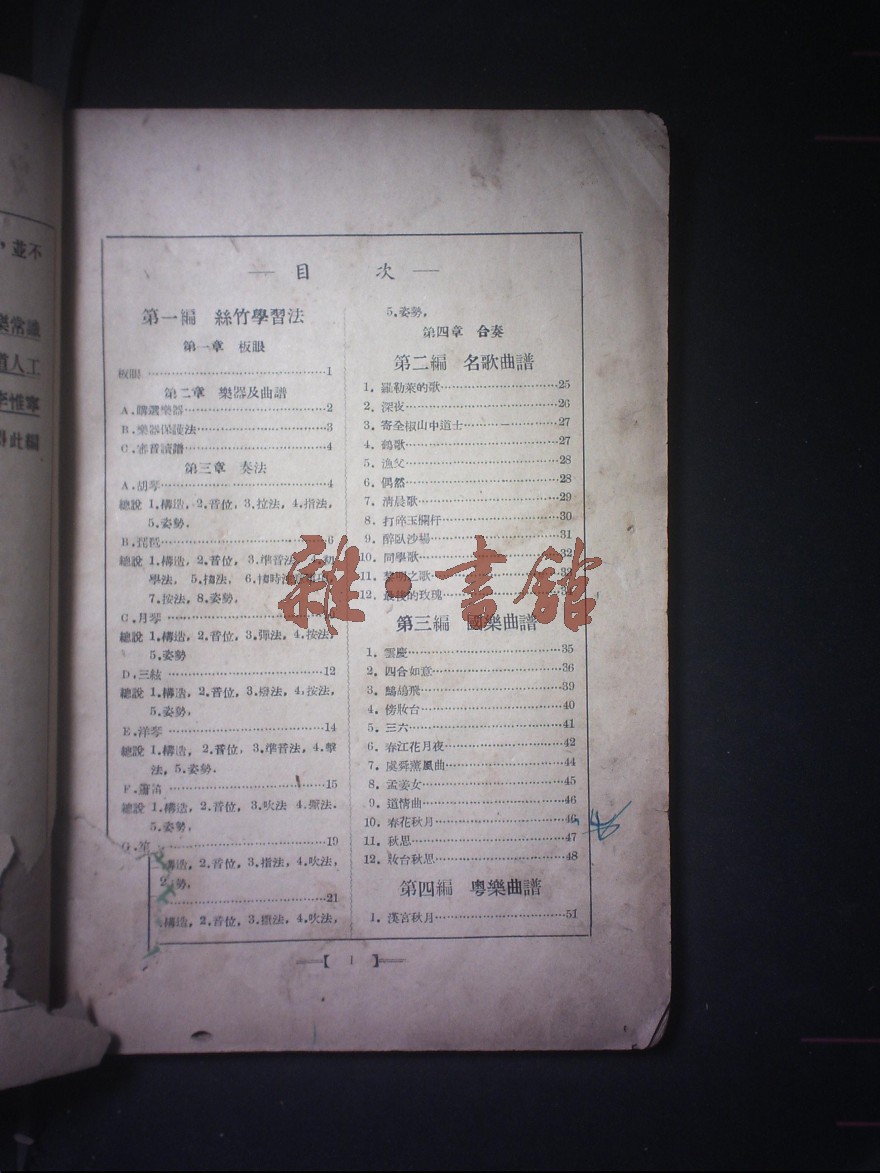 ，並不
樂常識
道人工
李惟寧
得此編
目 次
第一編 絲竹學習法
第一章 板眼
板眼……1
第二章 樂器及曲譜
A.購選樂器……2
B.樂器保護法……3
C.審音讀譜……4
第三章 奏法
A.胡琴……4
總說 1.構造，2.音位，3.拉法，4.指法，
5.姿勢.
B.琵琶……6
總說 1.構造，2.音位，3.準音法，4.初
學法， 5.
7.按法，8.姿勢.
C.月琴
總說 1.構造，2.音位，3.彈法，4.按法，
5.姿勢
D.三絃……12
總說 1.構造，2.音位，3.撥法，4.按法，
5.姿勢.
E.洋琴……14
總說 1.構造，2.音位，3.準音法，4.擊
法，5.姿勢.
F.簫笛……15
總說 1.構造，2.音位，3.吹法 4.
5.姿勢.
G.笙……19
構造，2.音位，3.指法，4.吹法，
勢.
……21
構造，2.音位，3. 4.吹法，
5.姿勢，
第四章 合奏
第二編 名歌曲譜
1. 羅勒萊的歌……25
2. 深夜……26
3. 寄全椒山中道士……27
4. 鶴歌……27
5. 漁父……28
6. 偶然……28
7. 清晨歌……29
8. 打碎玉欄杆……30
9. 醉臥沙場……31
10. 同學歌……32
11. 黎明之歌……32
12. 最後的玫瑰
第三編 國樂曲譜
1. 雲慶……35
2. 四合如意……36
3. 鷓鴣飛……39
4. 傍妝台……40
5. 三六……41
6. 春江花月夜……42
7. 虞舜薰風曲……44
8. 孟姜女……45
9. 道情曲……46
10. 春花秋月……46
11. 秋思……47
12. 妝台秋思……48
第四編 粵樂曲譜
1. 漢宮秋月……51
【 1 】
雜·書館